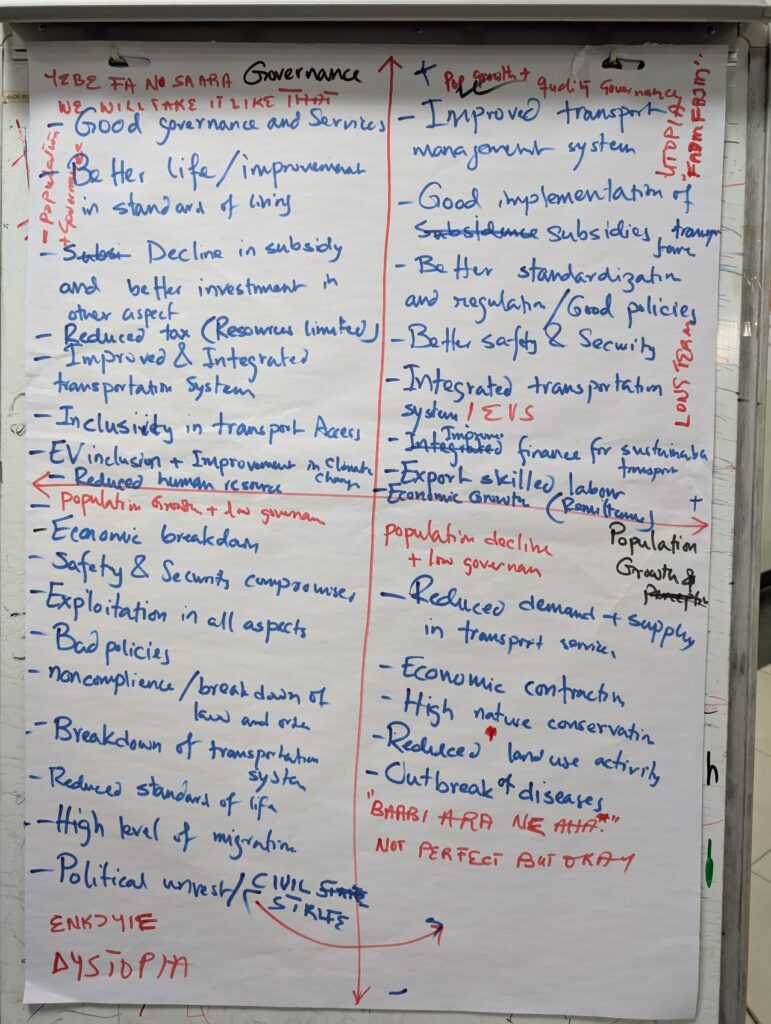 YEBE FA NO SAARA Governance
WE WILL TAKE IT LIKE THAT
- Population
+ Governance
- Good governance and Services
- Better life/improvement
in standard of living
- Subsi Decline in subsidy
and better investment in
other aspect
- Reduced tax (Resources limited)
- Improved & Integrated
transportation System
- Inclusivity in transport Access
- EV inclusion + Improvement in Climate
change
- Reduced human resource
+ Pop growth + quality Governance
UTOPIA
LONG TERM
- Improved transport
management system
- Good implementation of
subsidies
- Better standardization
and regulation/Good policies
- Better safety & Security
- Integrated transportation
system / EVS
- Integrated Improve finance for sustainable
transport
- Export skilled labour
- Economic Growth
+
Population
Growth &
- population Growth + low governan
- Economic breakdown
- Safety & Security compromises
- Exploitation in all aspects
- Bad policies
- noncomplience/breakdown of
law and order
- Breakdown of transportation
system
- Reduced standard of life
- High level of migration
- Political unrest/CIVIL STATE
STRIFE
ENKOYIE
DYSTOPIA
population decline
+ low governan
- Reduced demand + supply
in transport services
- Economic contraction
- High nature conservation
- Reduced land use activity
- Outbreak of diseases
"BAABI ARA NE AHA"
NOT PERFECT BUT OKAY
-
h